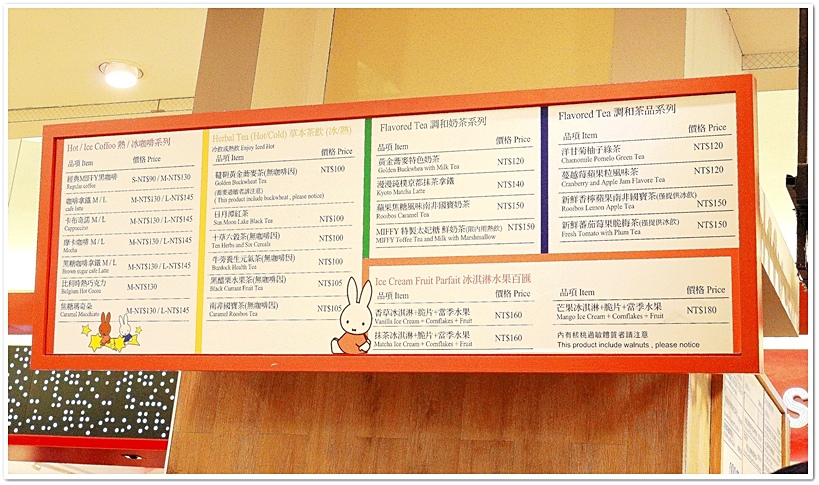 Hot / Ice Coffoo 熱 / 冰咖啡系列
品項 Item 價格 Price
經典MIFFY黑咖啡 S-NT$90 / M-NT$130
Regular coffee
咖啡拿鐵 M / L M-NT$130 / L-NT$145
cafe latte
卡布奇諾 M / L M-NT$130 / L-NT$145
Cappuccino
摩卡咖啡 M / L M-NT$130 / L-NT$145
Mocha
黑糖咖啡拿鐵 M / L M-NT$130 / L-NT$145
Brown sugar cafe Latte
比利時熱巧克力 M-NT$130
Belgian Hot Cocoa
焦糖瑪奇朵 M-NT$130 / L-NT$145
Caramel Macchiato
Herbal Tea (Hot/Cold) 草本茶飲 (冰/熱)
冷飲或熱飲 Enjoy Iced Hot
品項 Item 價格 Price
韃靼黃金蕎麥茶(無咖啡因) NT$100
Golden Buckwheat Tea
(蕎麥過敏者請注意)
( This product include buckwheat , please notice)
日月潭紅茶 NT$100
Sun Moon Lake Black Tea
十草六穀茶(無咖啡因) NT$100
Ten Herbs and Six Cereals
牛蒡養生元氣茶(無咖啡因) NT$100
Burdock Health Tea
黑醋栗水果茶(無咖啡因) NT$105
Black Currant Fruit Tea
南非國寶茶(無咖啡因) NT$105
Caramel Rooibos Tea
Flavored Tea 調和奶茶系列
品項 Item 價格 Price
黃金蕎麥特色奶茶 NT$120
Golden Buckwheat with Milk Tea
漫漫純樸京都抹茶拿鐵 NT$140
Kyoto Matcha Latte
蘋果焦糖風味南非國寶奶茶 NT$150
Rooibos Caramel Tea
MIFFY 特製太妃糖 鮮奶茶(限內用熱飲) NT$150
MIFFY Toffee Tea and Milk with Marshmallow
Flavored Tea 調和茶品系列
品項 Item 價格 Price
洋甘菊柚子綠茶 NT$120
Chamomile Pomelo Green Tea
蔓越莓蘋果粒風味茶 NT$120
Cranberry and Apple Jam Flavore Tea
新鮮香檸蘋果南非國寶茶(僅提供冰飲) NT$150
Rooibos Lemon Apple Tea
新鮮蕃茄莓果脆梅茶(僅提供冰飲) NT$150
Fresh Tomato with Plum Tea
Ice Cream Fruit Parfait 冰淇淋水果百匯
品項 Item 價格 Price
香草冰淇淋+脆片+當季水果 NT$160
Vanilla Ice Cream + Cornflakes + Fruit
抹茶冰淇淋+脆片+當季水果 NT$160
Matcha Ice Cream + Cornflakes + Fruit
品項 Item 價格 Price
芒果冰淇淋+脆片+當季水果 NT$180
Mango Ice Cream + Cornflakes + Fruit
內有核桃過敏體質者請注意
This product include walnuts , please notice